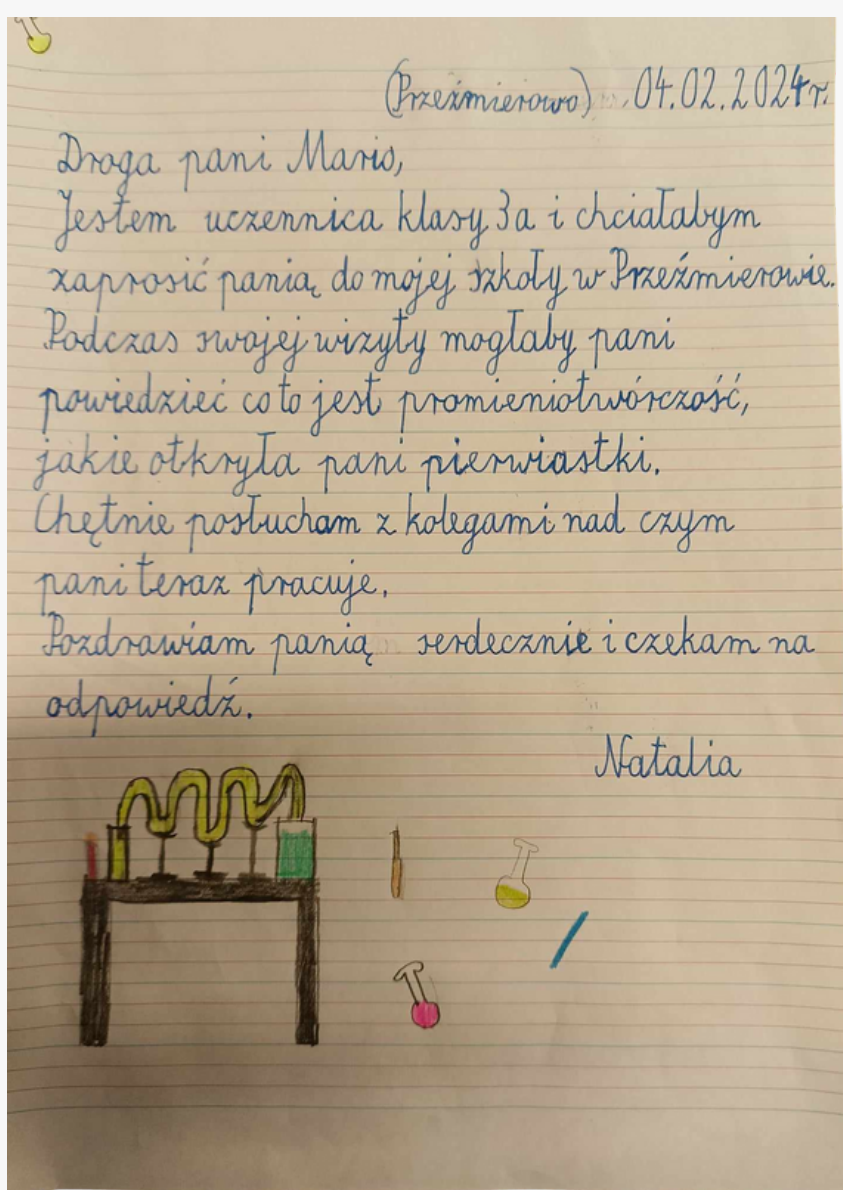 (Przeźmierowo) 04.02.2024r.
Droga pani Mario,
Jestem uczennica klasy 3a i chciałabym
zaprosić panią do mojej szkoły w Przeźmierowie.
Podczas swojej wizyty mogłaby pani
powiedzieć co to jest promieniotwórczość,
jakie otkryła pani pierwiastki.
Chętnie posłucham z kolegami nad czym
pani teraz pracuje.
Pozdrawiam panią serdecznie i czekam na
odpowiedź.
Natalia